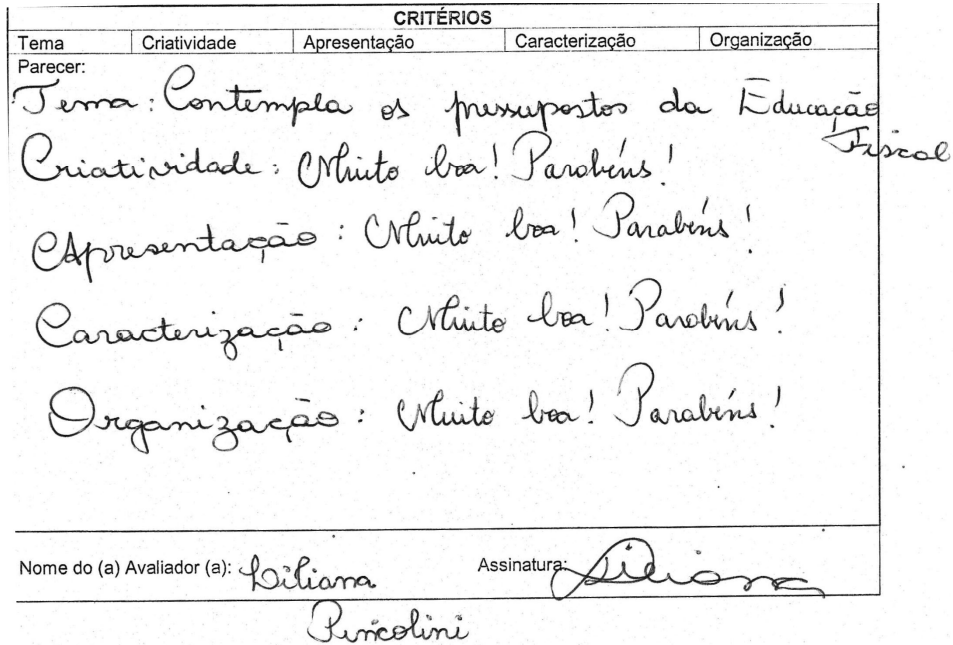 CRITÉRIOS
Tema Criatividade Apresentação Caracterização Organização
Parecer:
Tema: Contempla os pressupostos da Educação
Fiscal
Criatividade: Muito boa! Parabéns!
Apresentação: Muito boa! Parabéns!
Caracterização: Muito boa! Parabéns!
Organização: Muito boa! Parabéns!
Nome do (a) Avaliador (a): Liliana Assinatura: Liliana